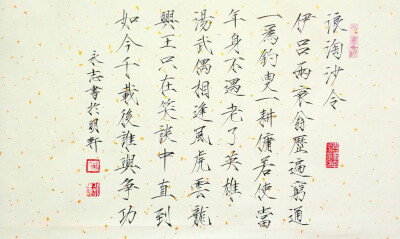 浪淘沙令
伊呂兩衰翁歷遍窮通
一為釣叟一耕傭若使當
年身不遇老了英雄
湯武偶相逢風虎雲龍
興王只在笑談中直到
如今千載後誰與爭功
永志書於明軒